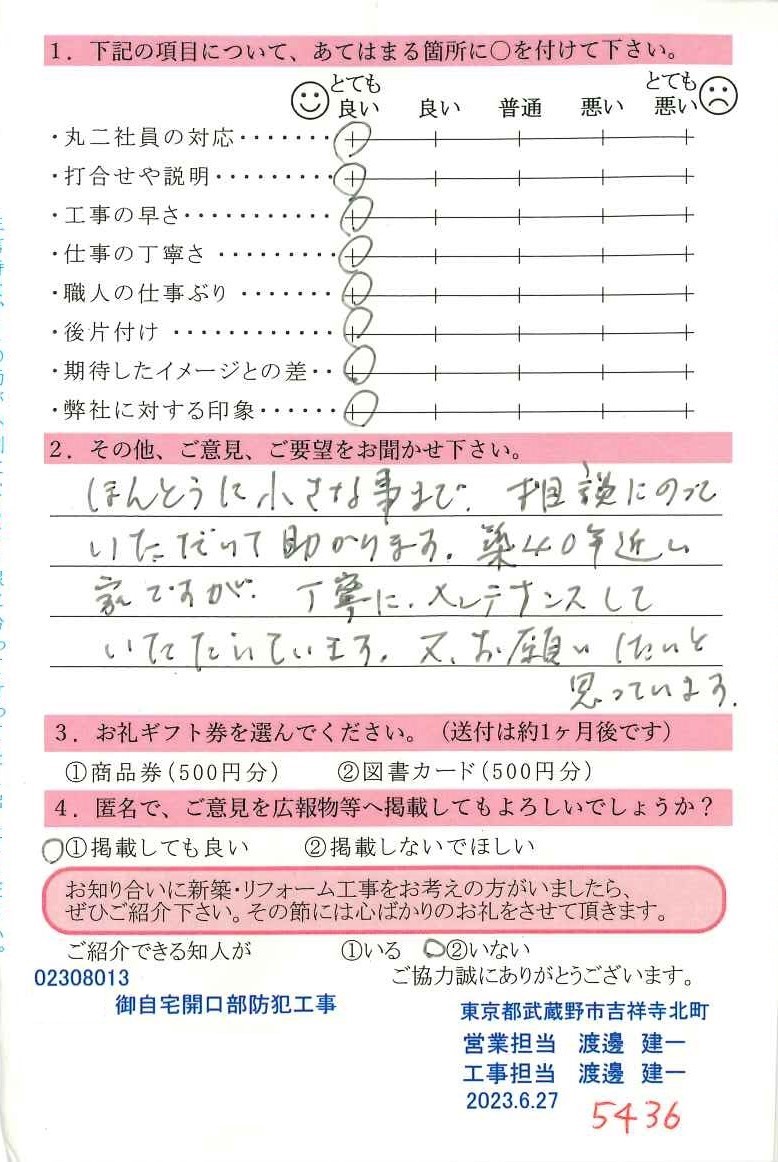 1．下記の項目について、あてはまる箇所に〇を付けて下さい。
とても良い 良い 普通 悪い とても悪い
・丸二社員の対応・・・・・・・
・打合せや説明・・・・・・・・・
・工事の早さ・・・・・・・・・・・
・仕事の丁寧さ・・・・・・・・・
・職人の仕事ぶり・・・・・・・・
・後片付け・・・・・・・・・・・・
・期待したイメージとの差・・
・弊社に対する印象・・・・・・
2．その他、ご意見、ご要望をお聞かせ下さい。
ほんとうに小さな事まで、相談にのって
いただいて助かります。築40年近い
家ですが、丁寧に、メンテナンスして
いただいています。又、お願いしたいと
思っています。
3．お礼ギフト券を選んでください。（送付は約1ヶ月後です）
①商品券（500円分） ②図書カード（500円分）
4．匿名で、ご意見を広報物等へ掲載してもよろしいでしょうか？
①掲載しても良い ②掲載しないでほしい
お知り合いに新築・リフォーム工事をお考えの方がいましたら、
ぜひご紹介下さい。その節には心ばかりのお礼をさせて頂きます。
ご紹介できる知人が ①いる ②いない
02308013 ご協力誠にありがとうございます。
御自宅開口部防犯工事
東京都武蔵野市吉祥寺北町
営業担当 渡邊 建一
工事担当 渡邊 建一
2023.6.27
5436